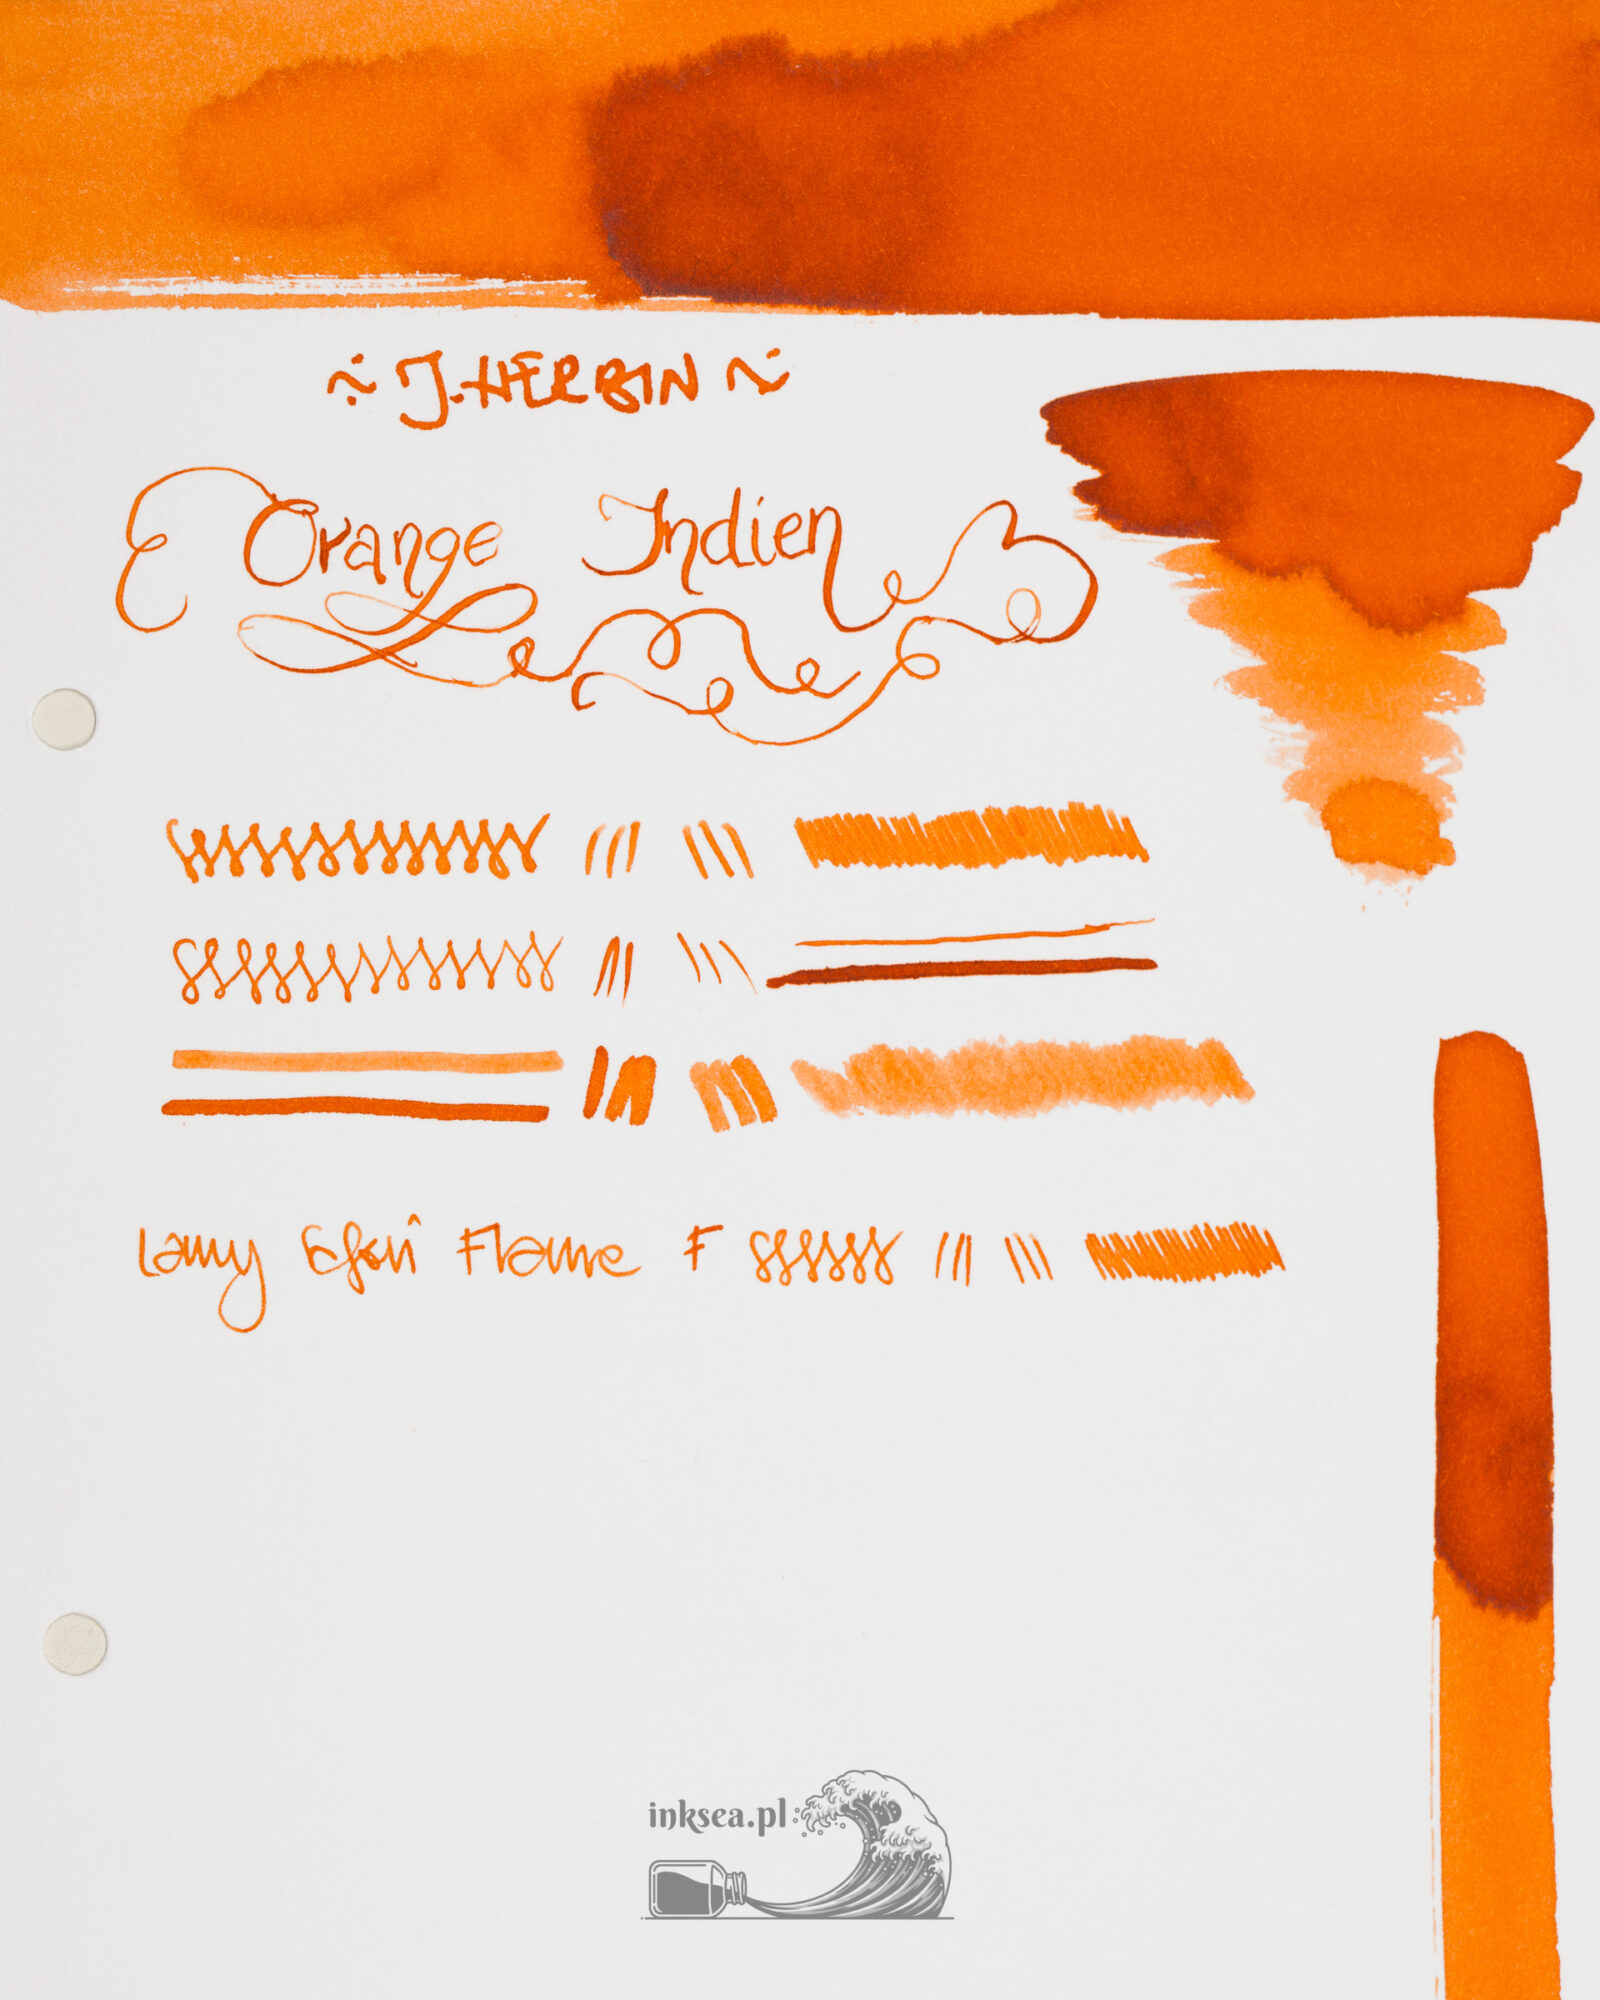 ~ J. HERBIN ~
Orange Indien
Lamy Safari Flame F
inksea.pl